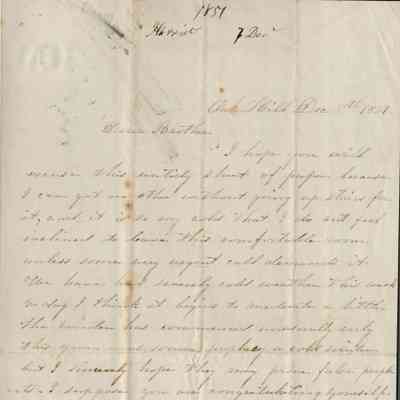 1851
Harriet 7 Dec
Oak Hill Dec 7th 1851
Dear Brother
I hope you will
excuse this untidy sheet of paper because
I can get no other without going up stairs for
it, and it is so very cold that I do not feel
inclined to leave this comfortable room
unless some very urgent call demands it.
We have had severely cold weather this week
to day I think it begins to moderate a little
the winter has commenced unusually early
this year some prophecy a cold winter
but I sincerely hope they may prove false prophets
I suppose you are congratulating yourself